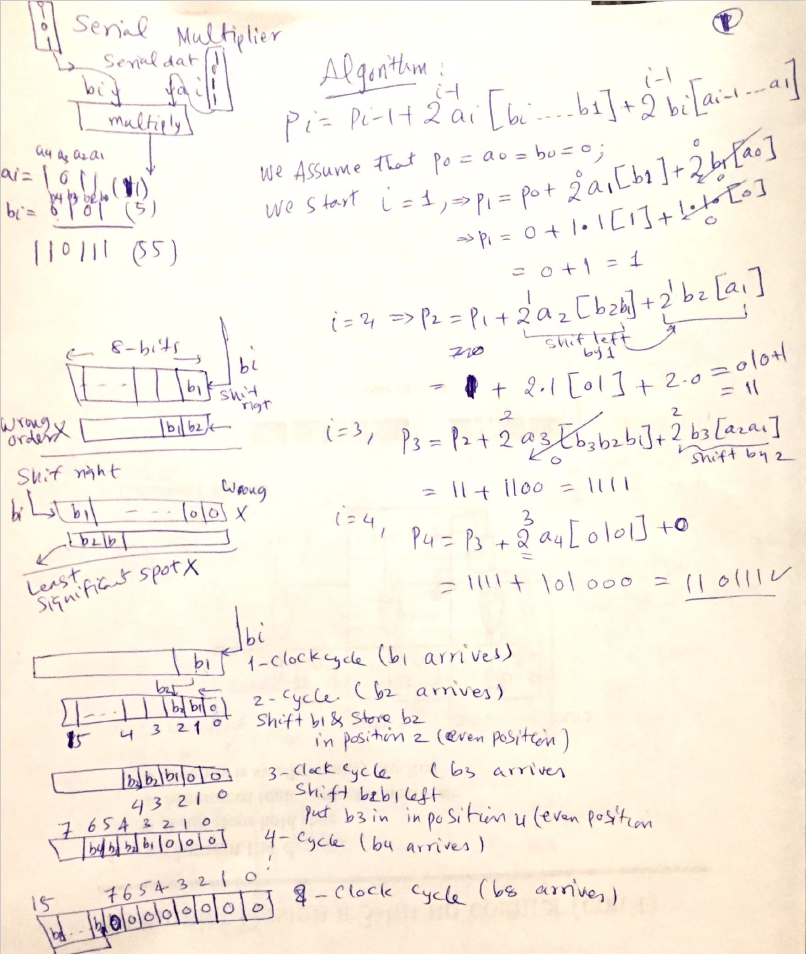 Serial Multiplier
Serial data
bi
ai
multiply
a4 a3 a2 a1
ai = 1 0 1 1 (11)
b4 b3 b2 b1
bi = 0 1 0 1 (5)
110111 (55)
Algorithm:
Pi = Pi-1 + 2^i-1 ai [bi ..... b1] + 2^i-1 bi [ai-1 ... a1]
We Assume that P0 = a0 = b0 = 0;
We start i = 1, ⇒ P1 = P0 + 2^0 a1 [b1] + 2^0 b1 [a0]
⇒ P1 = 0 + 1·1 [1] + 1·1· [0]
0
= 0 + 1 = 1
i = 2, ⇒ P2 = P1 + 2^1 a2 [b2b1] + 2^1 b2 [a1]
shift left
by 1
= 1 + 2·1 [01] + 2·0 = 010+1
= 11
i=3, P3 = P2 + 2^2 a3 [b3b2b1] + 2^2 b3 [a2a1]
0
shift by 2
= 11 + 1100 = 1111
i=4, P4 = P3 + 2^3 a4 [0101] + 0
= 1111 + 101 000 = 110111 ✓
8-bits
bi
b1
shift
right
Wrong
order X
b1 b2
Shif right
Wrong
bi
b1 - - - 0 0 X
b2 b1
Least
significant spot X
bi
b1
1-clockcycle (b1 arrives)
b2
- - - b2 b1 0
15 4 3 2 1 0
2-cycle (b2 arrives)
Shift b1 & store b2
in position 2 (even position)
b3 b2 b1 0 0
4 3 2 1 0
3-clock cycle (b3 arrives
Shift b2b1 left
put b3 in in position 4 (even position
7 6 5 4 3 2 1 0
b4 b3 b2 b1 0 0 0
4-cycle (b4 arrives)
15 7 6 5 4 3 2 1 0
b8 ... b1 0 0 0 0 0 0 0
8-clock cycle (b8 arrives)